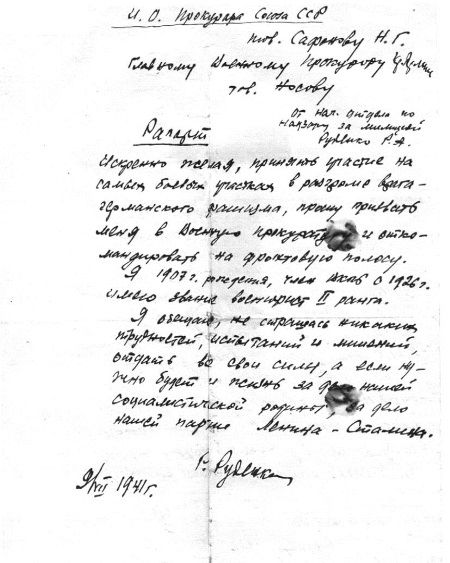 И. О. Прокурора Союза ССР
тов. Сафонову Н. Г.
Главному Военному Прокурору
тов. Носову
От нач. отдела по
надзору за милицией
Руденко Р. А.
Рапорт
Искренно желая, принять участие на
самых боевых участках в разгроме врага –
германского фашизма, прошу призвать
меня в военную прокуратуру и отко-
мандировать на фронтовую полосу.
Я 1907 г. рождения, член ВКПб с 1926 г.
имею звание военюрист II ранга.
Я обещаю, не страшась никаких
трудностей, испытаний и лишений,
отдать все свои силы, а если ну-
жно будет и жизнь за дело нашей
социалистической родины, за дело
нашей партии Ленина – Сталина.
Р. Руденко
9/VII 1941 г.